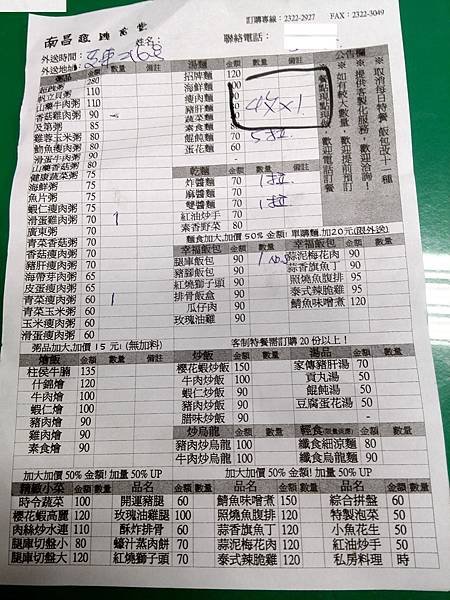 訂購專線：2322-2927 FAX：2322-3049
姓名：
聯絡電話：
外送時間：
外送地址：
粥品 金額 數量 備註
280
帆立貝粥 110
山藥牛肉粥 110
香菇雞肉粥 90
及第粥 85
雞蓉玉米粥 80
鮑魚瘦肉粥 80
滑蛋牛肉粥 80
山藥香菇粥 80
健康蔬菜粥 70
海鮮粥 75
魚片粥 75
蝦仁瘦肉粥 70
滑蛋雞肉粥 70 1
廣東粥 70
青菜香菇粥 70
香菇瘦肉粥 70
豬肝瘦肉粥 70
海帶芽肉粥 70
皮蛋瘦肉粥 65
青菜瘦肉粥 60 1
青菜玉米粥 60
玉米瘦肉粥 60
滑蛋瘦肉粥 60
粥品加大,加價15元!(無加料)
湯麵 金額 數量 備註
招牌麵 120
海鮮麵 100
瘦肉麵
豬肝麵
蔬菜麵
素食麵 80
餛飩麵 80
蛋花麵 60
4材x1
乾麵 金額 數量 備註
炸醬麵 70
麻醬麵 70
雙醬麵 70
紅油炒手 70
素香野菜 80
※取消每日特餐 飯包改十種
※提供客製化服務，歡迎洽詢！
※如有較大數量，歡迎提前預訂
歡迎電話訂餐
麵食加大,加價50%金額!單購麵,加20元(限外送)
幸福飯包 金額 數量
腿庫飯包 90
豬腳飯包 90
紅燒獅子頭 90
排骨飯盒 90
瓜仔肉 90
玫瑰油雞 90
幸福飯包 金額 數量
蒜泥梅花肉 90
蒜香旗魚丁 90
照燒魚腹排 95
泰式辣脆雞 95
鯖魚味噌煮 120
客制特餐需訂購20份以上！
燴飯 金額 數量 備註
柱侯牛腩 135
什錦燴 120
牛肉燴 100
蝦仁燴 100
豬肉燴 90
雞肉燴 90
素食燴 90
炒飯 金額 數量
櫻花蝦炒飯 150
牛肉炒飯 100
蝦仁炒飯 90
豬肉炒飯 90
臘味炒飯 -
炒烏龍 金額 數量
豬肉炒烏龍 100
牛肉炒烏龍 100
湯品 金額 數量
家傳豬肝湯 70
貢丸湯 50
餛飩湯 50
豆腐蛋花湯 50
輕食 金額 數量
纖食細涼麵 80
纖食雞絲麵 60
加大加價50%金額!加量50%UP 加大加價50%金額!加量50%UP
精緻小菜 金額 數量 品名 金額 數量 品名 金額 數量 品名 金額 數量
時令蔬菜 100 開運豬腿 60 鯖魚味噌煮 150 綜合拼盤 60
櫻花蝦高麗 120 玫瑰油雞腿 100 照燒魚腹排 120 特製泡菜 50
肉絲炒水連 110 酥炸排骨 60 蒜香旗魚丁 90 小魚花生 50
腿庫切盤小 80 蠔汁蒸肉餅 70 蒜泥梅花肉 90 紅油炒手 50
腿庫切盤大 120 紅燒獅子頭 70 泰式辣脆雞 120 私房料理 時